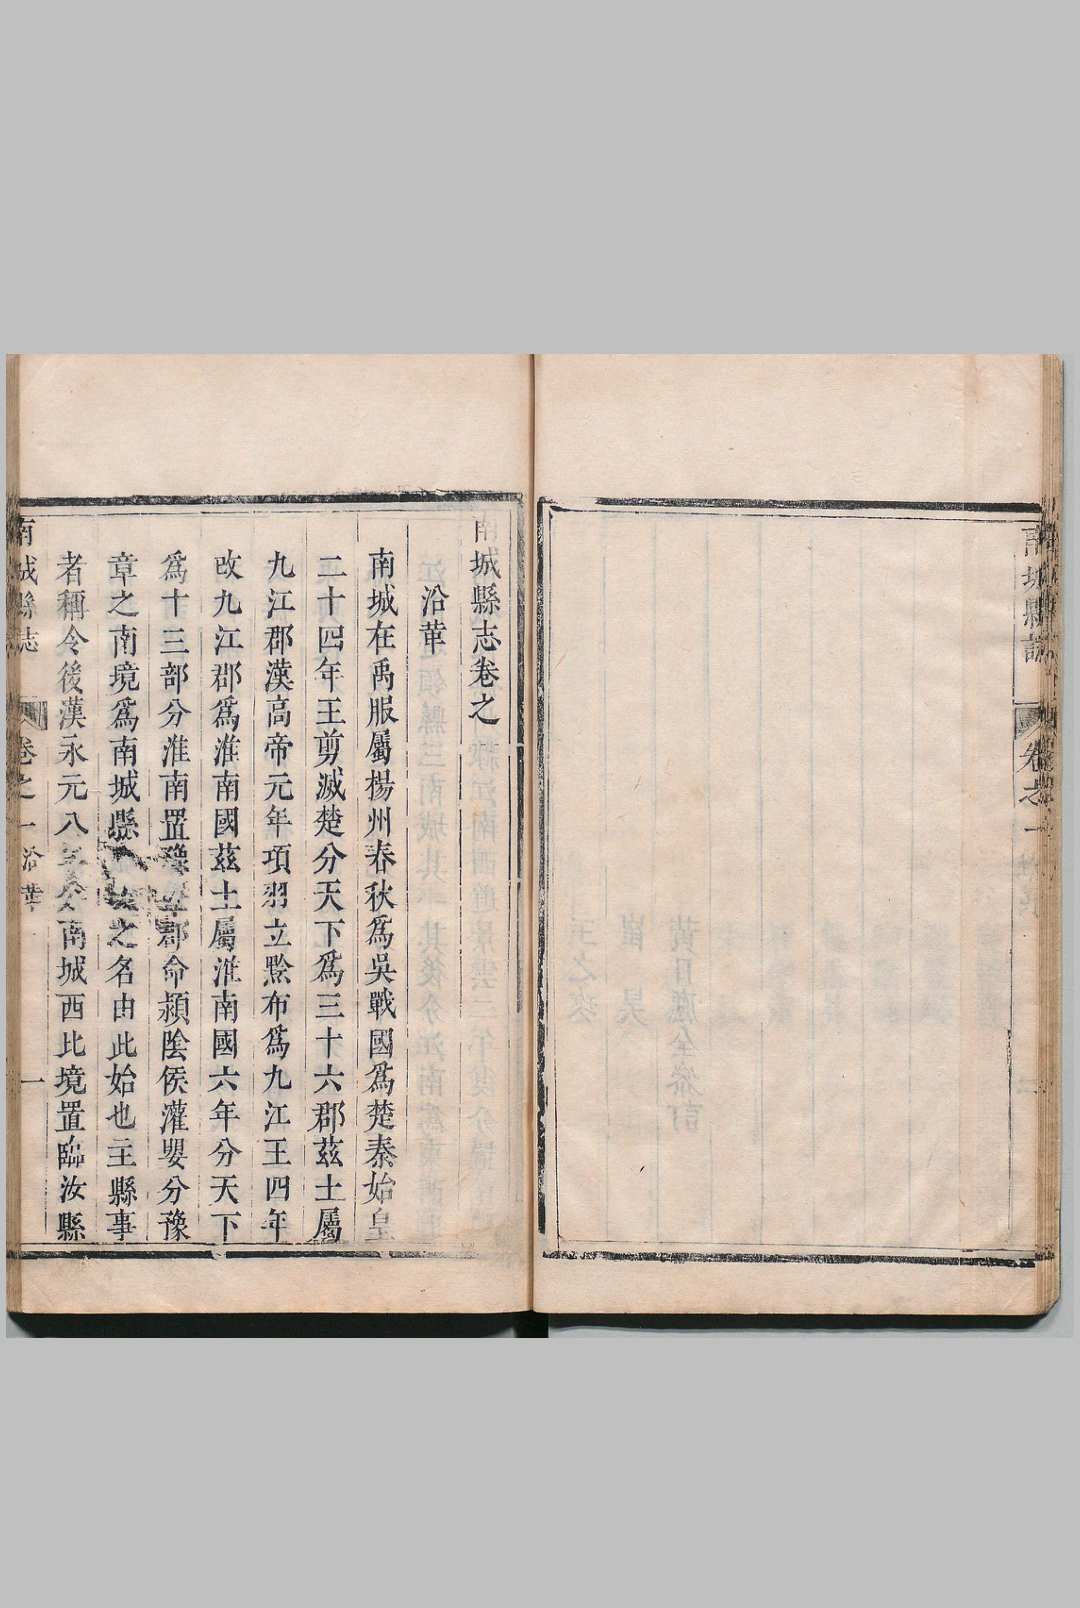 南城縣志卷之
沿革
南城在禹服屬楊州春秋為吳戰國為楚秦始皇
二十四年王剪滅楚分天下為三十六郡茲土屬
九江郡漢高帝元年項羽立黥布為九江王四年
改九江郡為淮南國茲土屬淮南國六年分天下
為十三部分淮南置豫章郡命潁陰侯灌嬰分豫
章之南境為南城縣 城之名由此始也主縣事
者稱令後漢永元八年分南城西北境置臨汝縣
南城縣志 卷之一 沿革 一